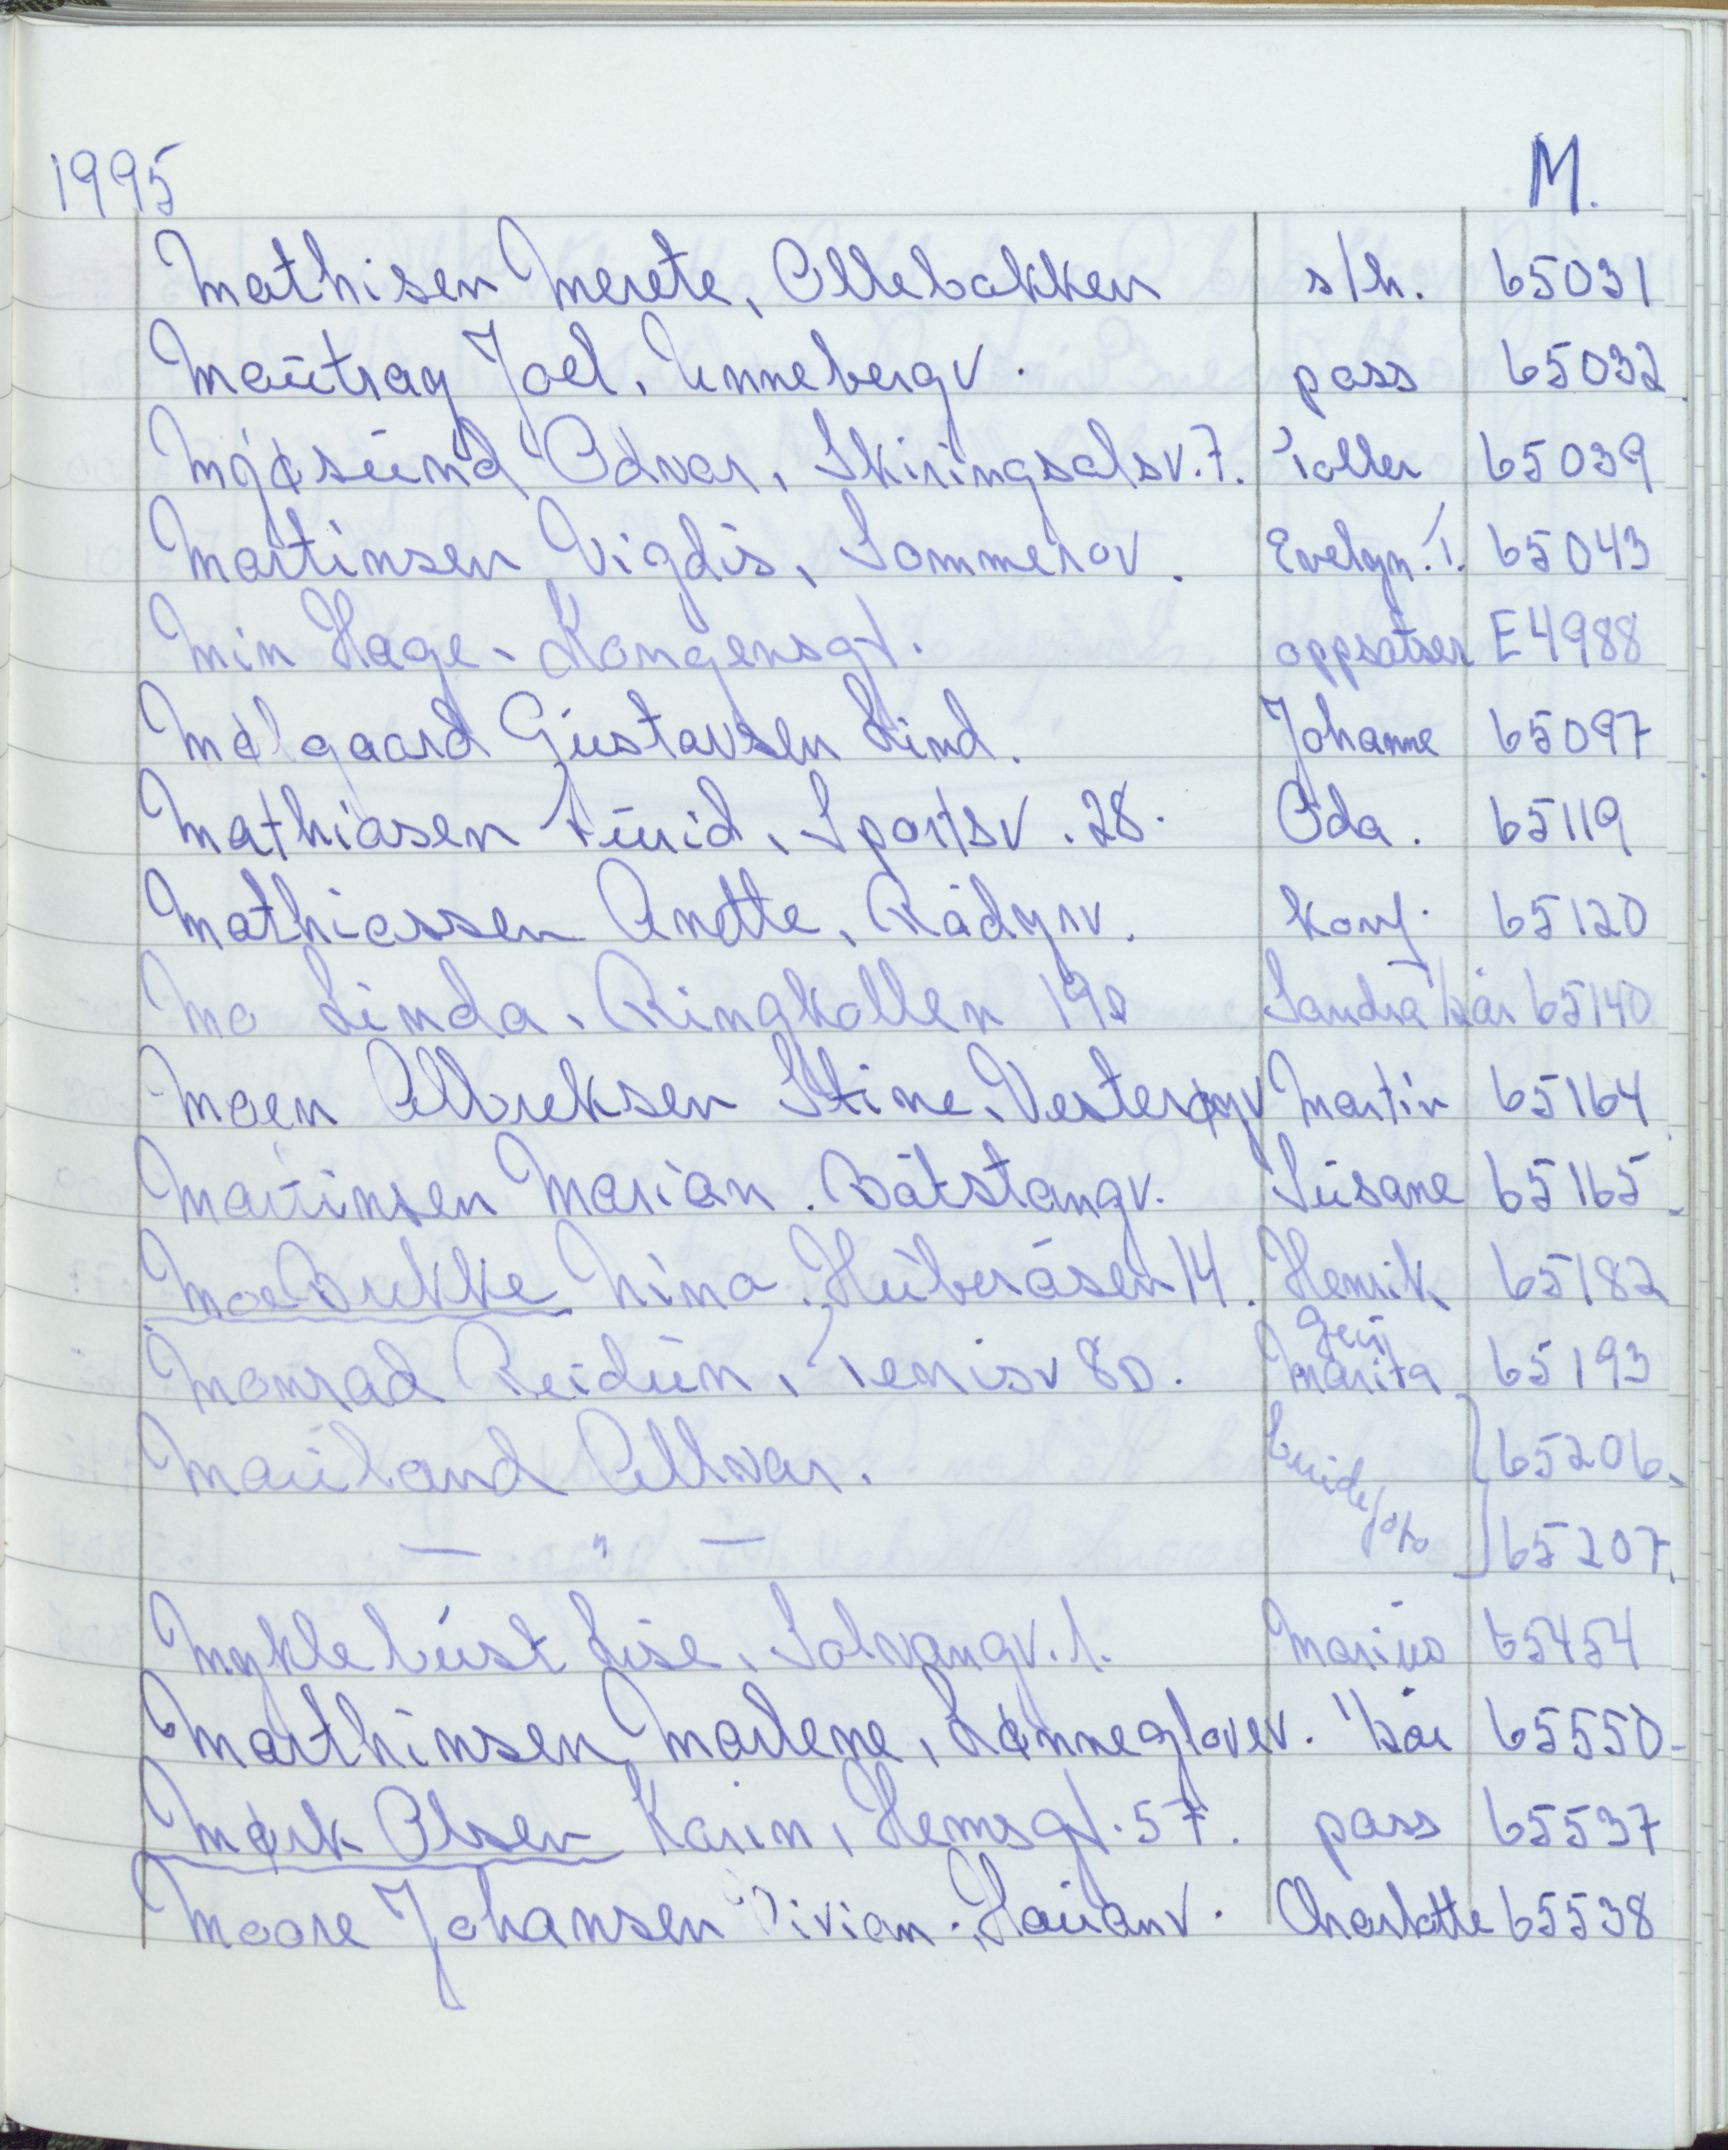 1995 M.
Mathisen Merete, Ollebakken s/h. 65031
Mautray Joel, Unnebergv. pass 65032
Mjøsund Odvar, Skiringsalsv. 7. Toller 65039
Martinsen Vigdis, Sommerov. Evelyn. T. 65043
Min Hage - Kongensgt. oppsatser E4988
Mølgaard Gustavsen Lind. Johanne 65097
Mathiasen Turid, Sportsv. 28. Oda. 65119
Mathiassen Anette, Rådyrv. konf. 65120
Mo Linda, Ringkollen 19D Sandra 1/2 år 65140
Moen Albreksen Stine, Vesterøyv Martin 65164
Martinsen Marian. Båtstangv. Susane 65165
Moe Brekke Nina. Huberåsen 14. Henrik 65182
Monrad Reidun, Tenisv 8D. Geir Marita 65193
Mauland Allvar. brude/ 65206
— " — 65207
Myklebust Lise, Solvangv. 1. Marius 65454
Marthinsen Marlene, Lønneglovev. 1/2 år 65550
Mørk Olsen Karin, Hemsgt. 57. pass 65537
Moore Johansen Vivian. Hauanv. Charlotte 65538